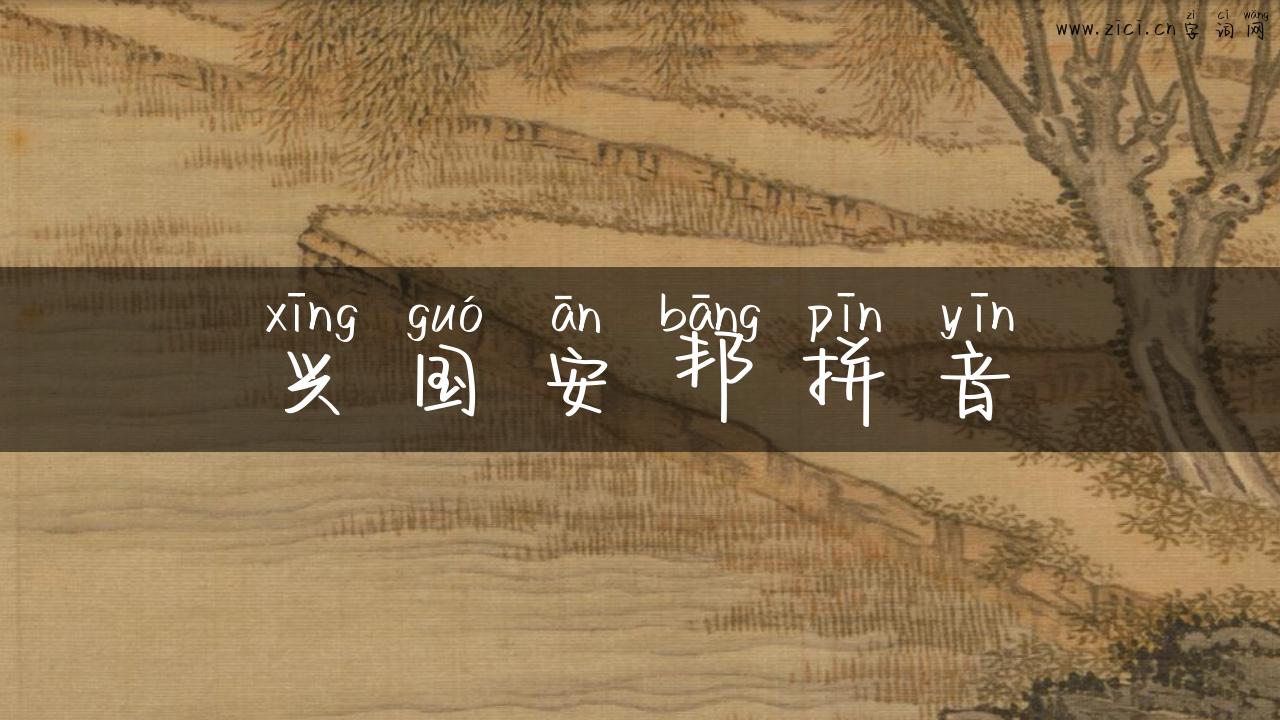 zì cí wǎng
www.zici.cn字词网
xīng guó ān bāng pīn yīn
兴国安邦拼音